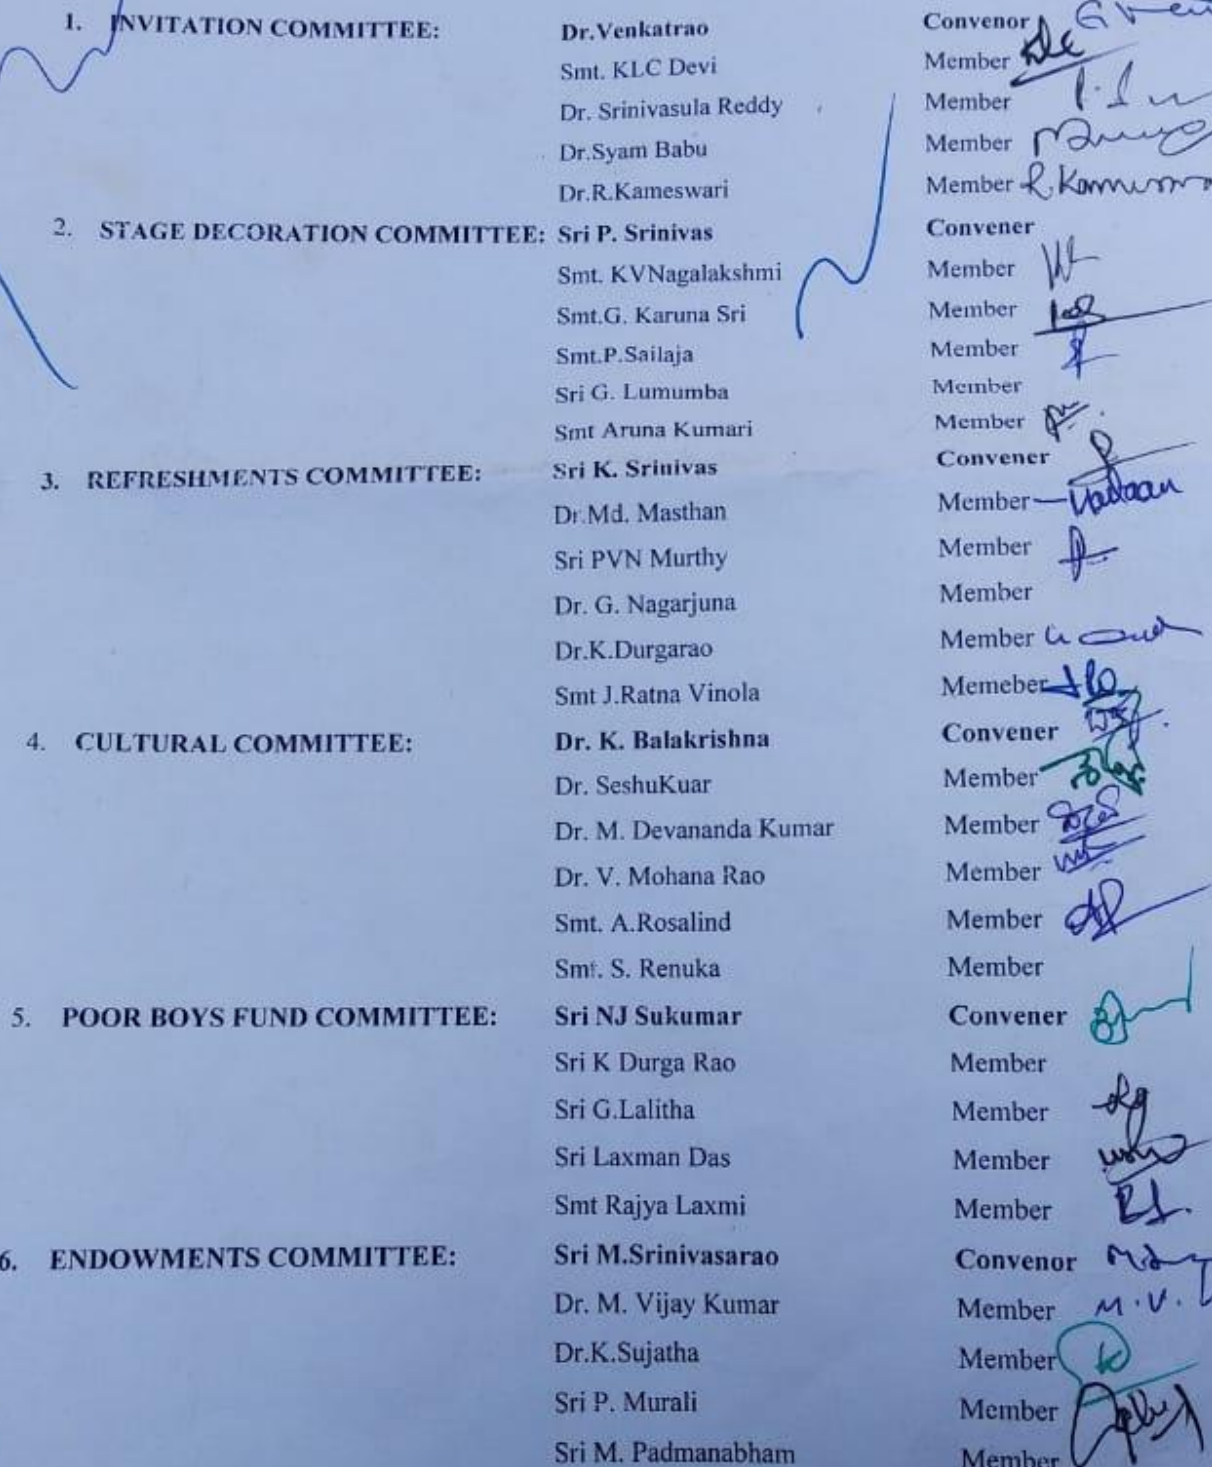 1. INVITATION COMMITTEE: Dr.Venkatrao Convenor
Smt. KLC Devi Member
Dr. Srinivasula Reddy Member
Dr.Syam Babu Member
Dr.R.Kameswari Member
2. STAGE DECORATION COMMITTEE: Sri P. Srinivas Convener
Smt. KVNagalakshmi Member
Smt.G. Karuna Sri Member
Smt.P.Sailaja Member
Sri G. Lumumba Member
Smt Aruna Kumari Member
3. REFRESHMENTS COMMITTEE: Sri K. Srinivas Convener
Dr.Md. Masthan Member
Sri PVN Murthy Member
Dr. G. Nagarjuna Member
Dr.K.Durgarao Member
Smt J.Ratna Vinola Memeber
4. CULTURAL COMMITTEE: Dr. K. Balakrishna Convener
Dr. SeshuKuar Member
Dr. M. Devananda Kumar Member
Dr. V. Mohana Rao Member
Smt. A.Rosalind Member
Smt. S. Renuka Member
5. POOR BOYS FUND COMMITTEE: Sri NJ Sukumar Convener
Sri K Durga Rao Member
Sri G.Lalitha Member
Sri Laxman Das Member
Smt Rajya Laxmi Member
6. ENDOWMENTS COMMITTEE: Sri M.Srinivasarao Convenor
Dr. M. Vijay Kumar Member M.V.
Dr.K.Sujatha Member
Sri P. Murali Member
Sri M. Padmanabham Member